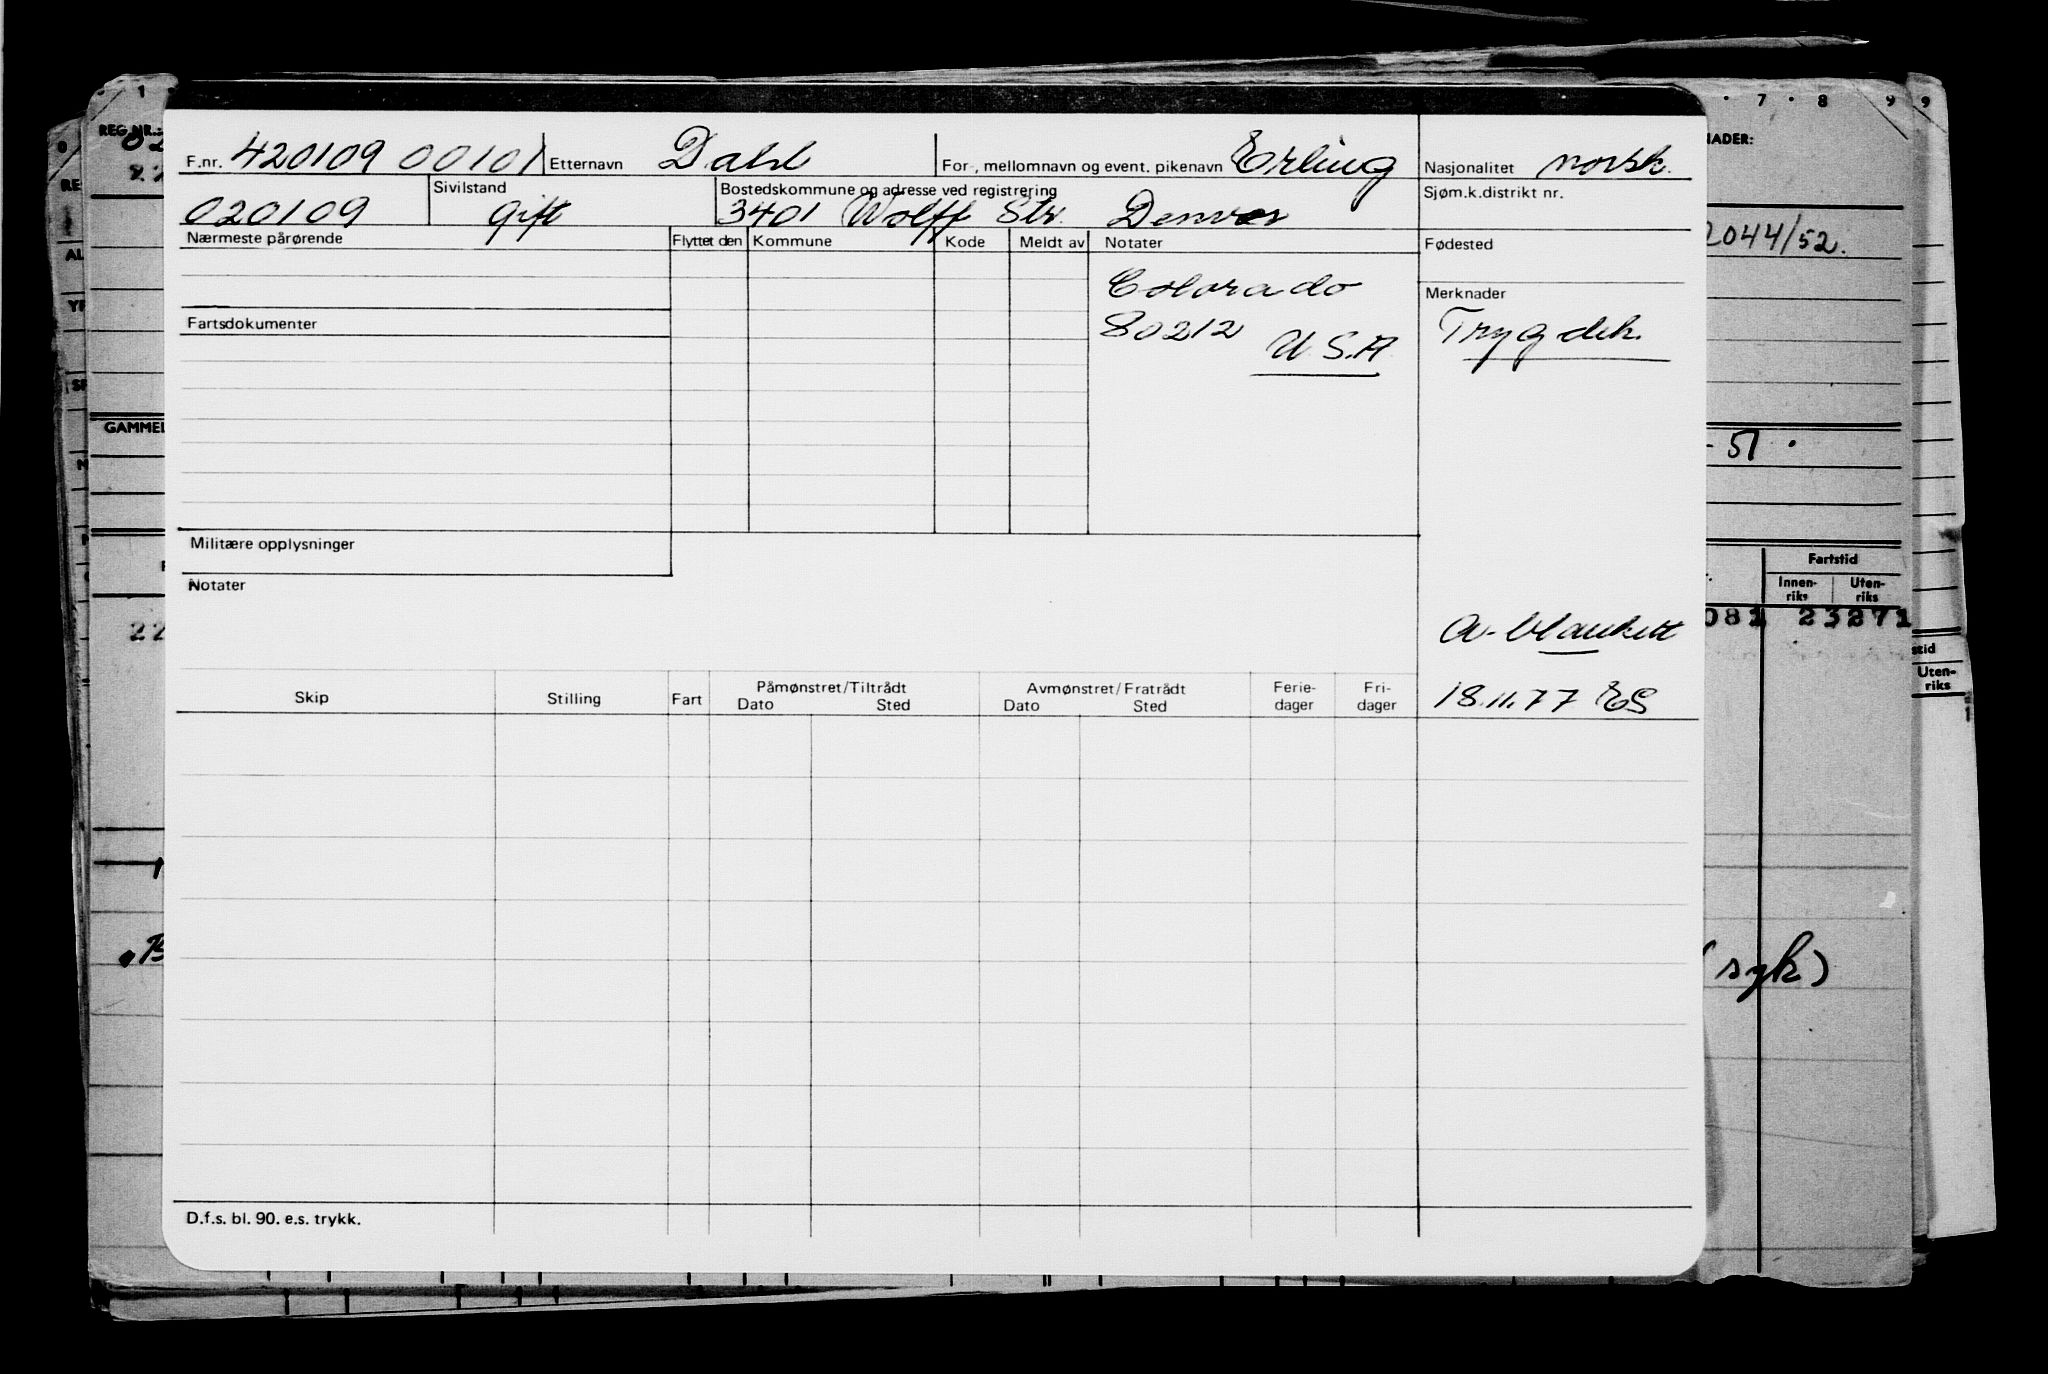 1 7 8 9 9
REG.NR.: NADER:
F.nr. 420109 00101 Etternavn Dahl For-, mellomnavn og event. pikenavn Erling Nasjonalitet norsk.
020109 Sivilstand gift Bostedskommune og adresse ved registrering 3401 Wolff Str. Denver Sjøm.k.distrikt nr.
Nærmeste pårørende Flyttet den Kommune Kode Meldt av Notater Fødested
2044/52.
Colorado
80212
U S.A
Merknader
Trygdek.
Fartsdokumenter
GAMMEL
-51
Militære opplysninger
Notater
Fartstid
Innen-riks Uten-riks
22
081 23271
A-blankett
stid
Uten-riks
Skip Stilling Fart Påmønstret/Tiltrådt Avmønstret/Fratrådt Ferie-dager Fri-dager
Dato Sted Dato Sted
18.11.77 ES
(syk)
D.f.s. bl. 90. e.s. trykk.